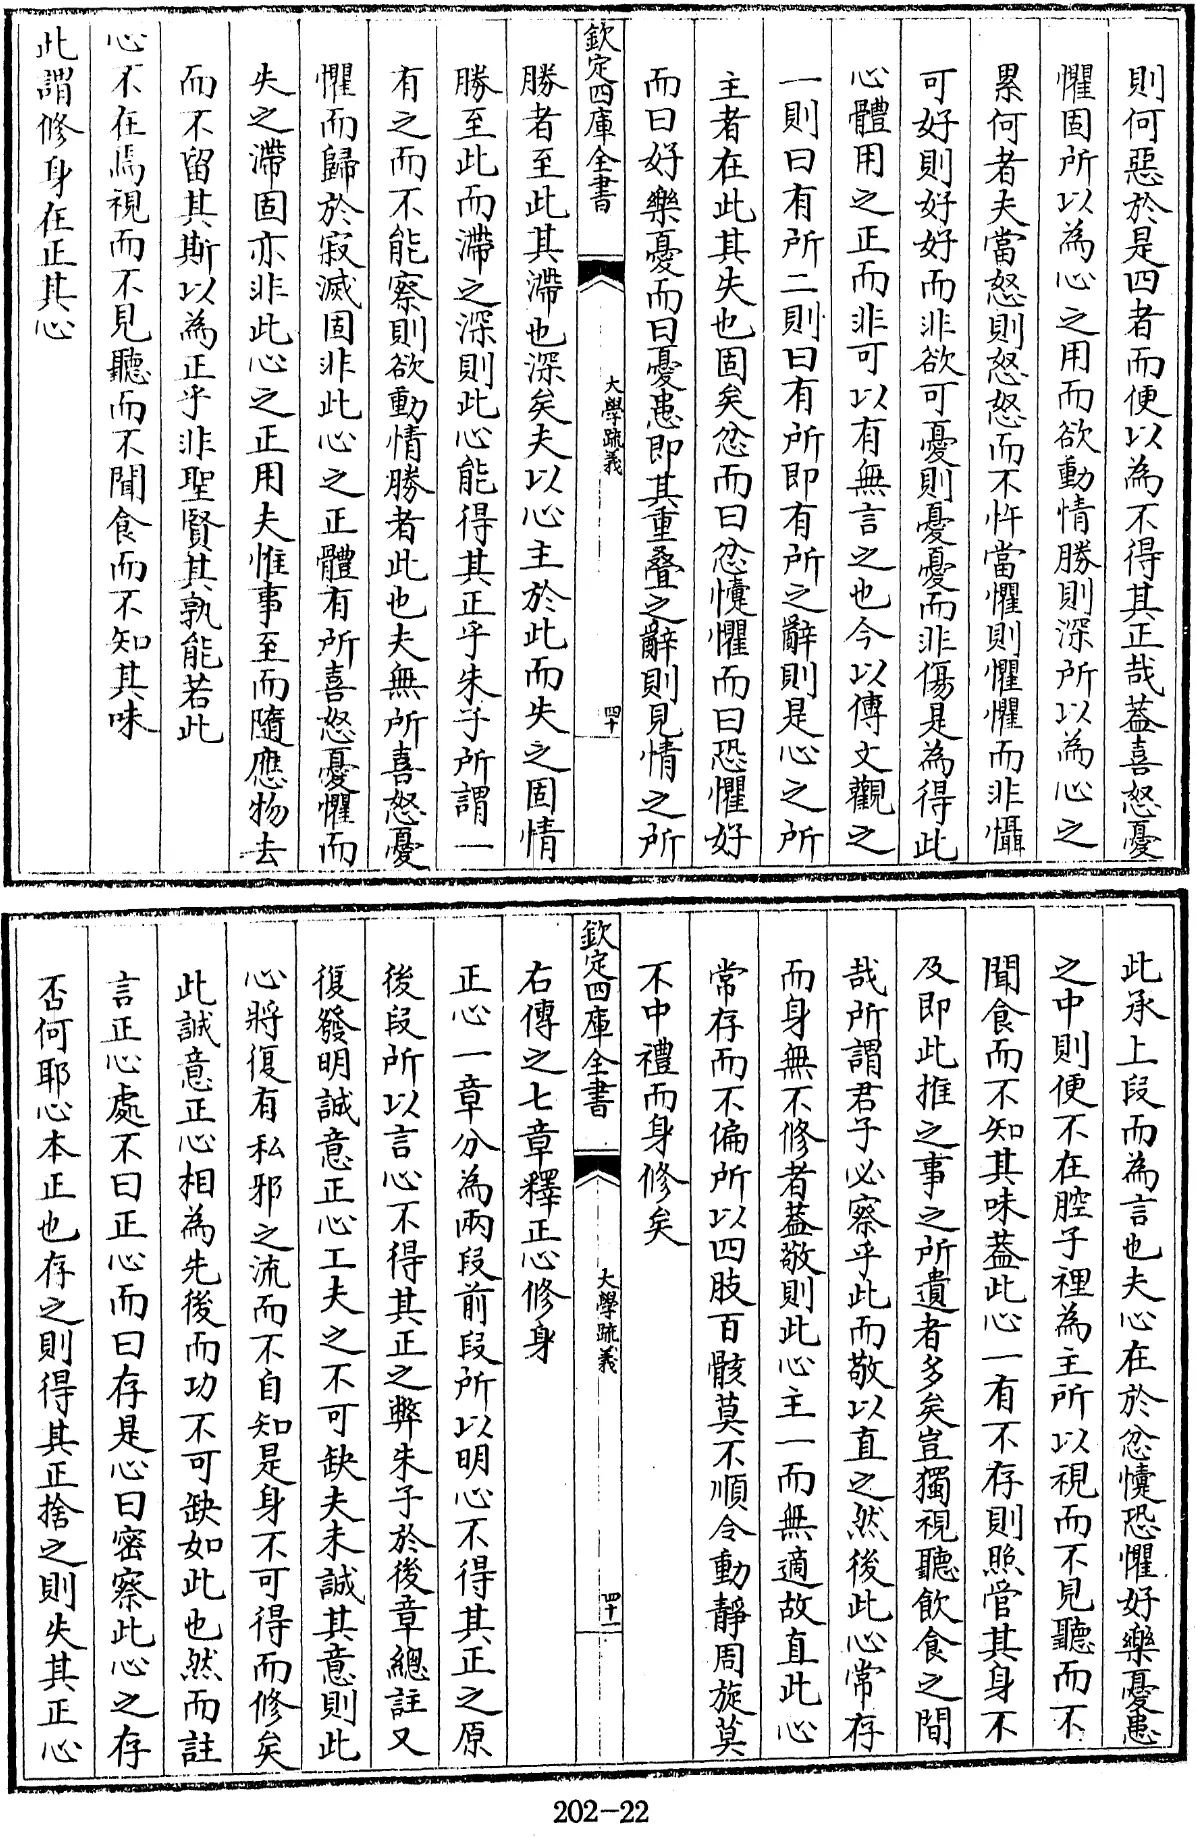 則何惡於是四者而便以為不得其正哉葢喜怒憂
懼固所以為心之用而欲動情勝則深所以為心之
累何者夫當怒則怒怒而不忤當懼則懼懼而非懾
可好則好好而非欲可憂則憂憂而非傷是為得此
心體用之正而非可以有無言之也今以傳文觀之
一則曰有所二則曰有所即有所之辭則是心之所
主者在此其失也固矣忿而曰忿懥懼而曰恐懼好
而曰好樂憂而曰憂患即其重疊之辭則見情之所
欽定四庫全書
大學疏義
四十
勝者至此其滯也深矣夫以心主於此而失之固情
勝至此而滯之深則此心能得其正乎朱子所謂一
有之而不能察則欲動情勝者此也夫無所喜怒憂
懼而歸於寂滅固非此心之正體有所喜怒憂懼而
失之滯固亦非此心之正用夫惟事至而隨應物去
而不留其斯以為正乎非聖賢其孰能若此
心不在焉視而不見聽而不聞食而不知其味
此謂修身在正其心
此承上段而為言也夫心在於忿懥恐懼好樂憂患
之中則便不在腔子裡為主所以視而不見聽而不
聞食而不知其味葢此心一有不存則照管其身不
及即此推之事之所遺者多矣豈獨視聽飲食之間
哉所謂君子必察乎此而敬以直之然後此心常存
而身無不修者葢敬則此心主一而無適故直此心
常存而不偏所以四肢百骸莫不順令動靜周旋莫
不中禮而身修矣
欽定四庫全書
大學疏義
四十一
右傳之七章釋正心修身
正心一章分為兩段前段所以明心不得其正之原
後段所以言心不得其正之弊朱子於後章總註又
復發明誠意正心工夫之不可缺夫未誠其意則此
心將復有私邪之流而不自知是身不可得而修矣
此誠意正心相為先後而功不可缺如此也然而註
言正心處不曰正心而曰存是心曰密察此心之存
否何耶心本正也存之則得其正捨之則失其正心
202-22